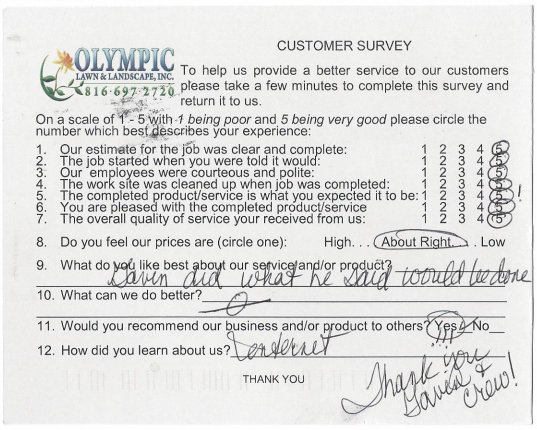 OLYMPIC
LAWN & LANDSCAPE, INC.
816-697-2720
CUSTOMER SURVEY
To help us provide a better service to our customers
please take a few minutes to complete this survey and
return it to us.
On a scale of 1 - 5 with 1 being poor and 5 being very good please circle the
number which best describes your experience:
1. Our estimate for the job was clear and complete: 1 2 3 4 5
2. The job started when you were told it would: 1 2 3 4 5
3. Our employees were courteous and polite: 1 2 3 4 5
4. The work site was cleaned up when job was completed: 1 2 3 4 5
5. The completed product/service is what you expected it to be: 1 2 3 4 5 !
6. You are pleased with the completed product/service 1 2 3 4 5
7. The overall quality of service your received from us: 1 2 3 4 5
8. Do you feel our prices are (circle one): High. . . About Right. . . Low
9. What do you like best about our service and/or product?
Gavin did what he said would be done
10. What can we do better? 0
11. Would you recommend our business and/or product to others? Yes No
!!!
12. How did you learn about us? Internet
THANK YOU
Thank you
Gaven &
Crew!